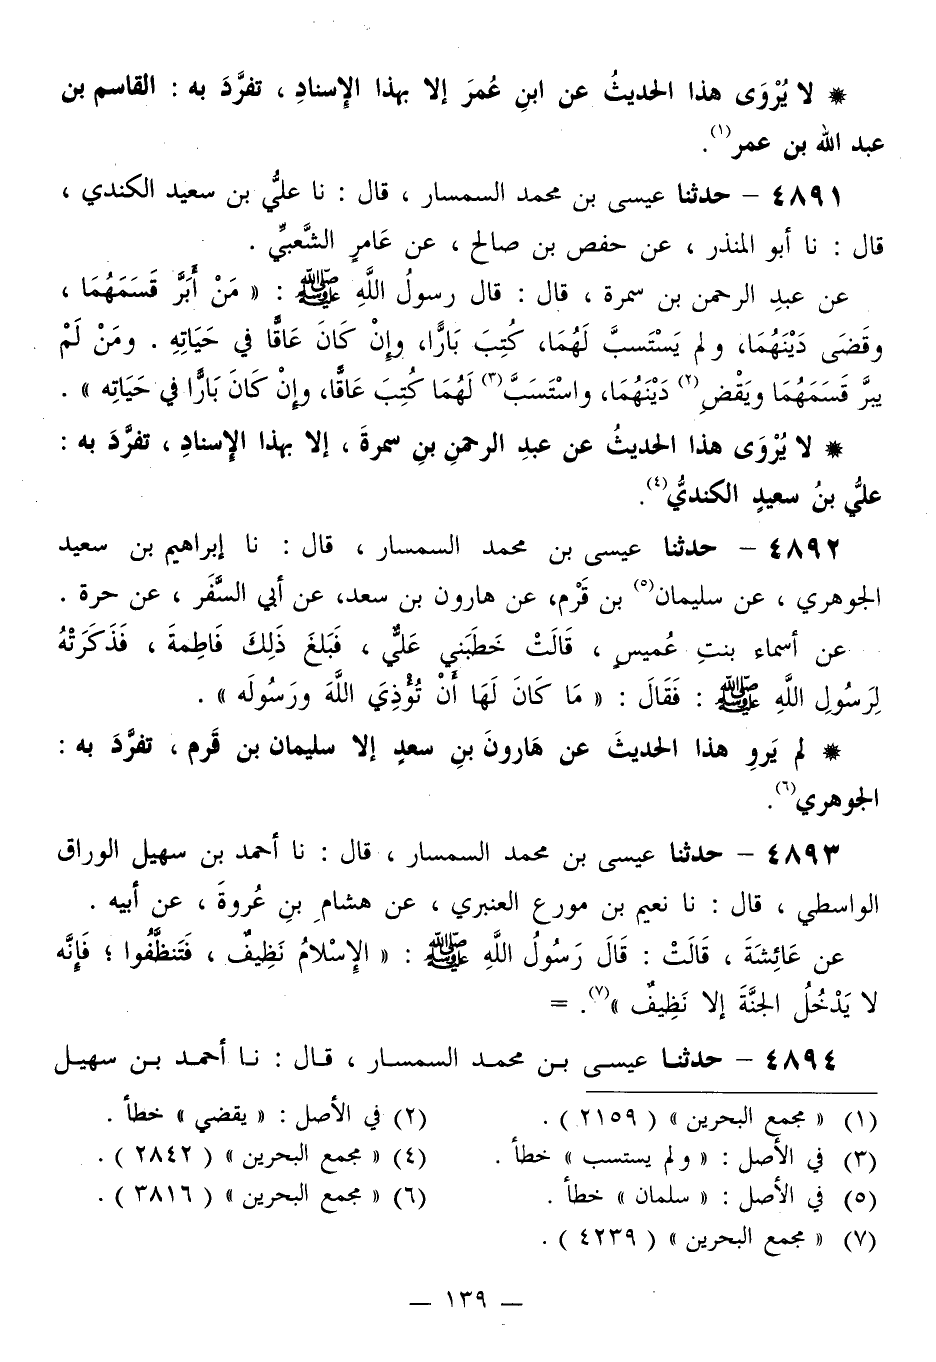 * لا يُرْوَى هذا الحديثُ عن ابنِ عُمرَ إلا بهذا الإِسنادِ ، تفرَّدَ به : القاسم بن
عبد الله بن عمر(١).
٤٨٩١ – حدثنا عيسى بن محمد السمسار ، قال : نا عليُّ بن سعيد الكندي ،
قال : نا أبو المنذر ، عن حفص بن صالح ، عن عَامرٍ الشَّعبيِّ .
عن عبدِ الرحمن بن سمرة ، قال : قال رسولُ اللَّهِ ﷺ : « مَنْ أَبَرَّ قَسَمَهُمَا ،
وقَضَى دَيْنَهُمَا، ولم يَسْتَسبَّ لَهُمَا، كُتِبَ بَارًّا، وإِنْ كَانَ عَاقًّا في حَيَاتِهِ . ومَنْ لَمْ
يبرَّ قَسَمَهُمَا ويَقْضِ(٢) دَيْنَهُمَا، واسْتَسَبَّ(٣) لَهُمَا كُتِبَ عَاقًّا، وإِنْ كَانَ بَارًّا في حَيَاتِه » .
* لا يُرْوَى هذا الحديثُ عن عبدِ الرحمنِ بنِ سمرةَ ، إلا بهذا الإِسنادِ ، تفرَّدَ به :
عليُّ بنُ سعيدٍ الكنديُّ(٤).
٤٨٩٢ – حدثنا عيسى بن محمد السمسار ، قال : نا إبراهيم بن سعيد
الجوهري ، عن سليمان(٥) بن قَرْم، عن هارون بن سعد، عن أبي السَّفَر ، عن حرة .
عن أسماء بنتِ عُميسٍ ، قَالَتْ خَطَبَني عَليٌّ ، فَبَلغَ ذَلِكَ فَاطِمةَ ، فَذَكَرَتْهُ
لِرَسُولِ اللَّهِ ﷺ : فَقَالَ : « مَا كَانَ لَهَا أَنْ تُؤْذِيَ اللَّهَ ورَسُولَه » .
* لم يَروِ هذا الحديثَ عن هَارونَ بنِ سعدٍ إلا سليمان بن قَرم ، تفرَّدَ به :
الجوهري(٦).
٤٨٩٣ – حدثنا عيسى بن محمد السمسار ، قال : نا أحمد بن سهيل الوراق
الواسطي ، قال : نا نعيم بن مورع العنبري ، عن هشامِ بنِ عُروةَ ، عن أبيه .
عن عَائِشةَ ، قَالَتْ : قَالَ رَسُولُ اللَّهِ ﷺ : « الإِسْلامُ نَظِيفٌ ، فَتَنظَّفُوا ؛ فَإِنَّه
لا يَدْخُلُ الجنَّةَ إلا نَظِيفٌ »(٧). =
٤٨٩٤ – حدثنا عيسى بن محمد السمسار ، قال : نا أحمد بن سهيل
(١) « مجمع البحرين » ( ٢١٥٩ ) .
(٢) في الأصل : « يقضي » خطأ .
(٣) في الأصل : « ولم يستسب » خطأ .
(٤) « مجمع البحرين » ( ٢٨٤٢ ) .
(٥) في الأصل : « سلمان » خطأ .
(٦) « مجمع البحرين » ( ٣٨١٦ ) .
(٧) « مجمع البحرين » ( ٤٢٣٩ ) .
— ١٣٩ —